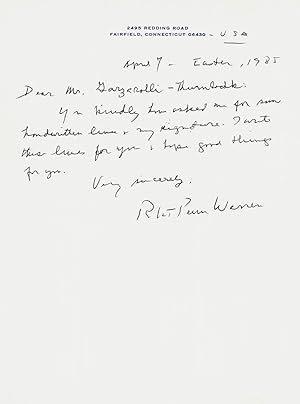 2495 REDDING ROAD
FAIRFIELD, CONNECTICUT 06430 – USA
April 7 – Easter, 1985
Dear Mr. Garzarolli-Thurnlackh:
You kindly have asked me for some
handwritten lines & my signature. I write
these lines for you & hope good things
for you.
Very sincerely,
Robt Penn Warren